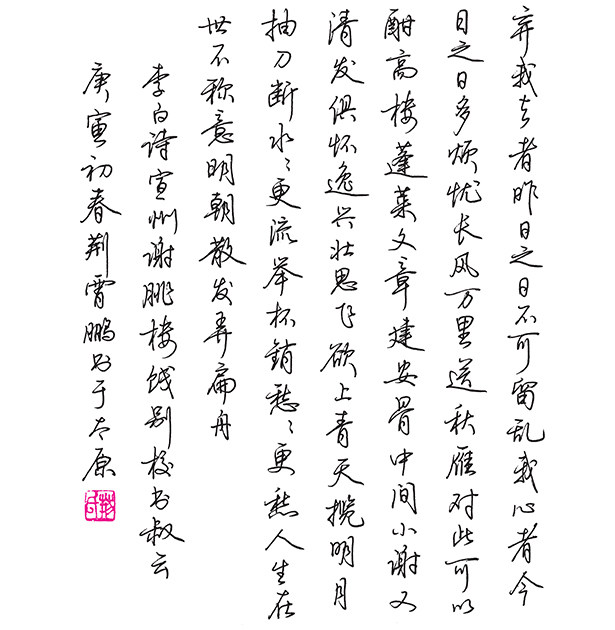 弃我去者昨日之日不可留乱我心者今
日之日多烦忧长风万里送秋雁对此可以
酣高楼蓬莱文章建安骨中间小谢又
清发俱怀逸兴壮思飞欲上青天揽明月
抽刀断水水更流举杯销愁愁更愁人生在
世不称意明朝散发弄扁舟
李白诗宣州谢朓楼饯别校书叔云
庚寅初春荆霄鹏书于太原